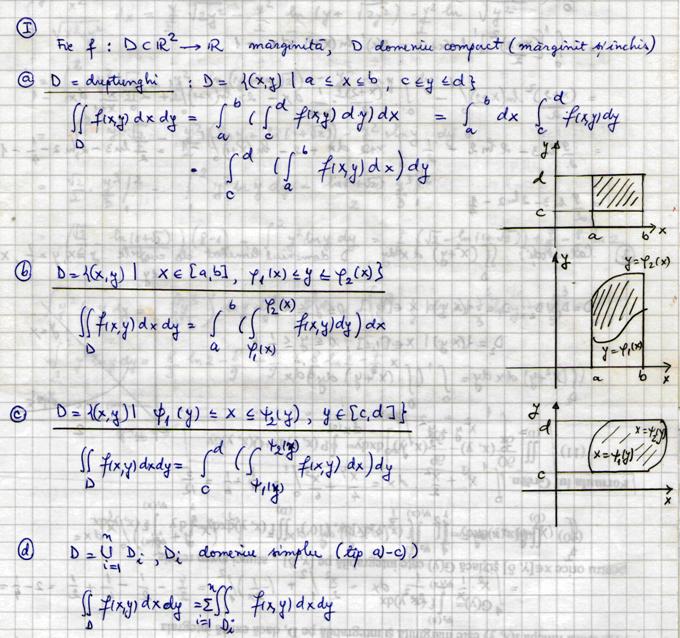 I
Fie f : D ⊂ ℝ² → ℝ mărginită, D domeniu compact (mărginit și închis)
a) D = dreptunghi : D = {(x,y) | a ≤ x ≤ b, c ≤ y ≤ d}
∬_D f(x,y) dx dy = ∫_a^b (∫_c^d f(x,y) dy) dx = ∫_a^b dx ∫_c^d f(x,y) dy
∫_c^d (∫_a^b f(x,y) dx) dy
y
d
c
a b x
b) D = {(x,y) | x ∈ [a,b], φ₁(x) ≤ y ≤ φ₂(x)}
∬_D f(x,y) dx dy = ∫_a^b (∫_{φ₁(x)}^{φ₂(x)} f(x,y) dy) dx
y y = φ₂(x)
y = φ₁(x)
a b x
c) D = {(x,y) | ψ₁(y) ≤ x ≤ ψ₂(y), y ∈ [c,d]}
∬_D f(x,y) dx dy = ∫_c^d (∫_{ψ₁(y)}^{ψ₂(y)} f(x,y) dx) dy
y
d
x = ψ₂(y)
x = ψ₁(y)
c
x
d) D = ⋃_{i=1}^n D_i , D_i domeniu simplu (tip a)-c))
∬_D f(x,y) dx dy = Σ_{i=1}^n ∬_{D_i} f(x,y) dx dy